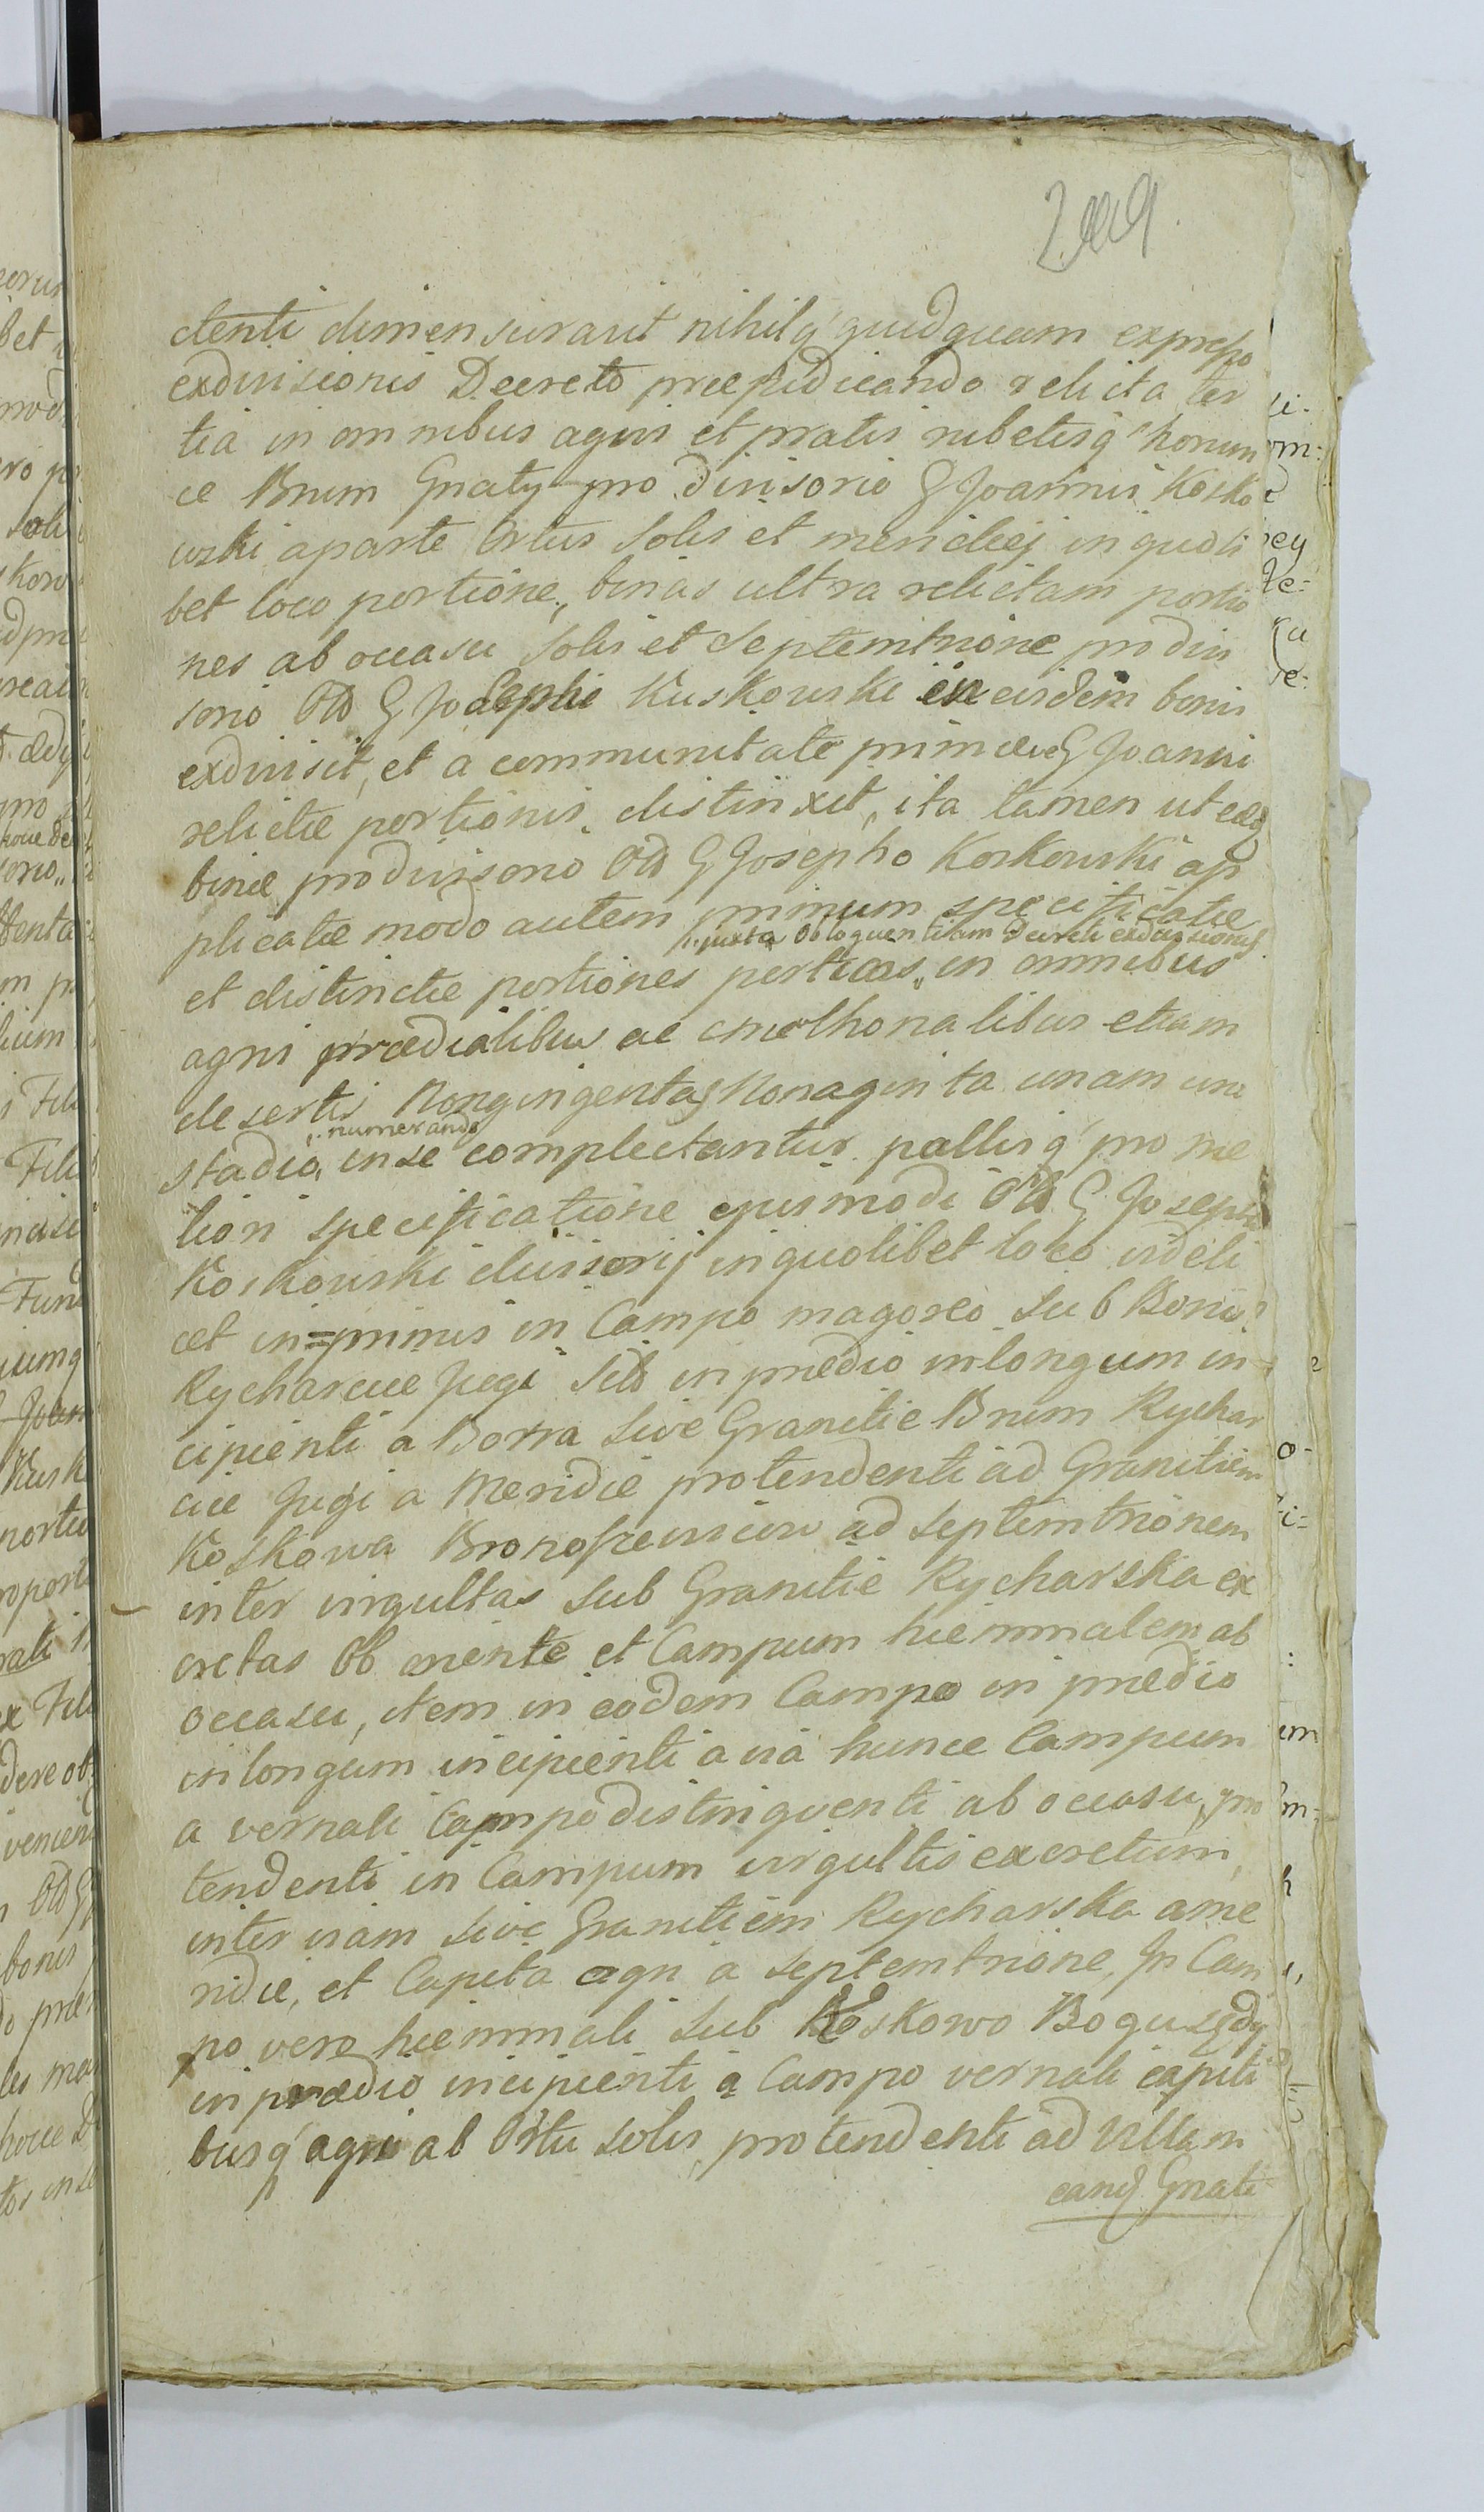 ctenti dimensuravit nihilq quidquam expresso
exdivisionis Decreto præjudicando relicta ter
tia in omnibus agris et pratis rubetisq horum
ce Bnum Gnaty pro divisorio G Joannis Kosko
wski a parte Ortus Solis et meridiej in quoli
bet loco portione, binas ultra relictam portio
nes ab occasu Solis et Septemtrione pro divi
sorio Old G Josephi Kuskowski in eisdem bonis
exdivisit, et a communitate primævæ G Joanni
relictæ portionis distinxit, ita tamen ut eæq
binæ pro divisorio Old G Josepho Koskowski ap
plicatæ modo autem primum specificatæ
juxta obloquentiam Decreti exdivisionis
et distinctæ portiones perticas in omnibus
agris prædialibus ac cmethonalibus etiam
desertis Nongingentas Nonaginta unam una
numerando
stadio, in se complectantur pallisq pro me
liori specificatione ejusmodi Old G Josephi
Koskowski divisorij in quolibet loco videli
cet in=primis in Campo magoreo sub Bonis
Rycharcice Jugi Sito in prædio in longum in=
cipienti a Borra Sive Granitie Bnum Rychar
cice Jugi a Meridie protendenti ad Granitiem
Koskowa Bronoszewicew ad septemtrionem
inter virgultas sub Granitie Rycharska ex
cretas Ob oriente et Campum hiemmalem ab
occasu, item in eodem Campo in prædio
in longum incipienti a via hunce Campum
a vernali Campo distinguenti ab occasu, pro
tendenti in Campum virgultis excretum,
inter viam sive Granitiem Rycharska a me
ridie, et Capita agri a septemtrione, In Cam
po vero hiemmali sub Koskowo Boguszędy
in prædio incipienti a Campo vernali capiti
busq agri ab Ortu solis protendenti ad Villam
eand Gnati